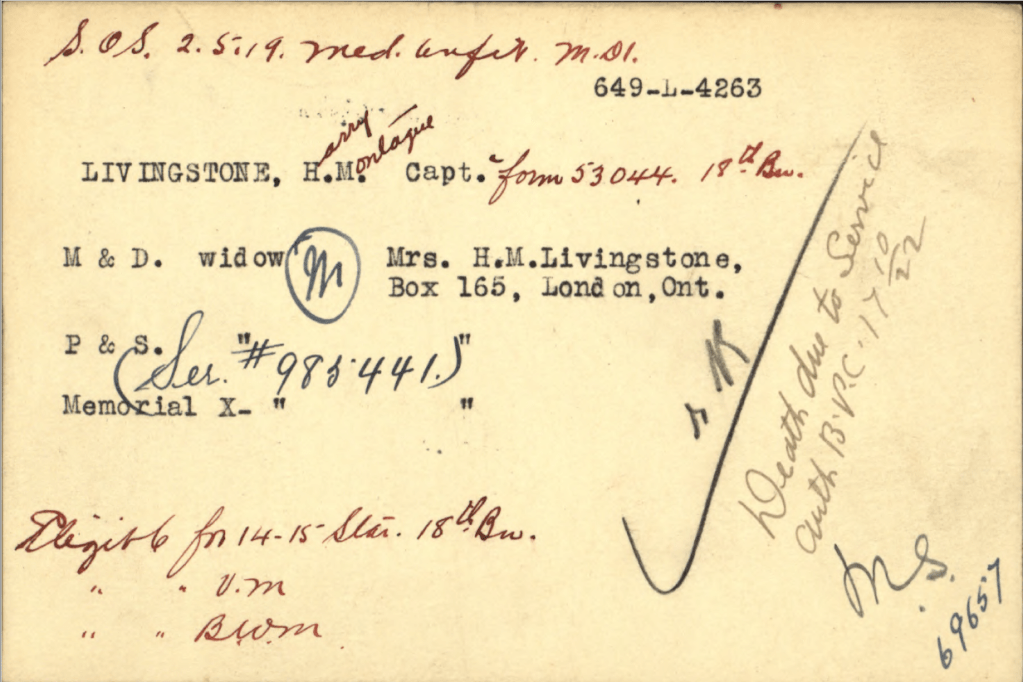 S.O.S. 2.5.19. Med. unfit. M.D1.
649-L-4263
arry ontague
LIVINGSTONE, H.M. Capt. form 53044. 18th Bn.
M & D. widow M Mrs. H.M.Livingstone,
Box 165, London,Ont.
P & S. " "
(Ser. #985441.)
Memorial X- " "
Death due to Service
auth B.P.C. 17 10/22
Eligible for 14-15 Star. 18th Bn.
" " V.M
" " B.W.M
M.S.
69657